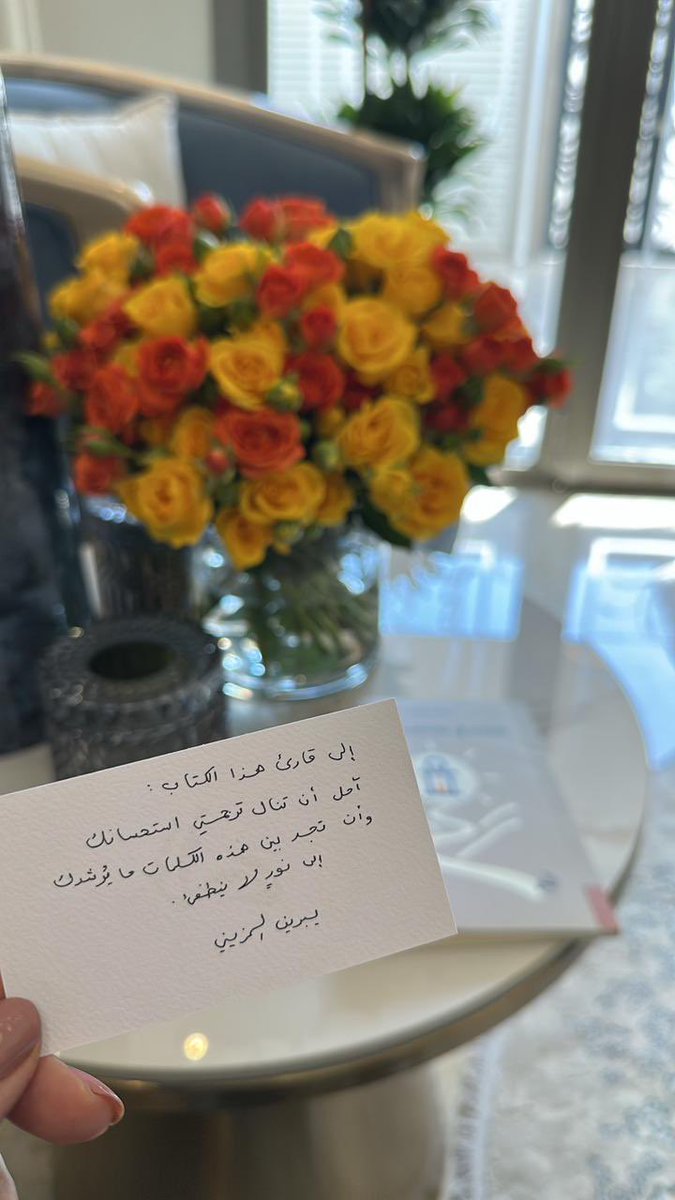 إلى قارئ هذا الكتاب :
آمل أن تنال ترجمتي استحسانك
وأن تجد بين هذه الكلمات ما يُرشدك
إلى نورٍ لا ينطفئ .
يبرين المزيني